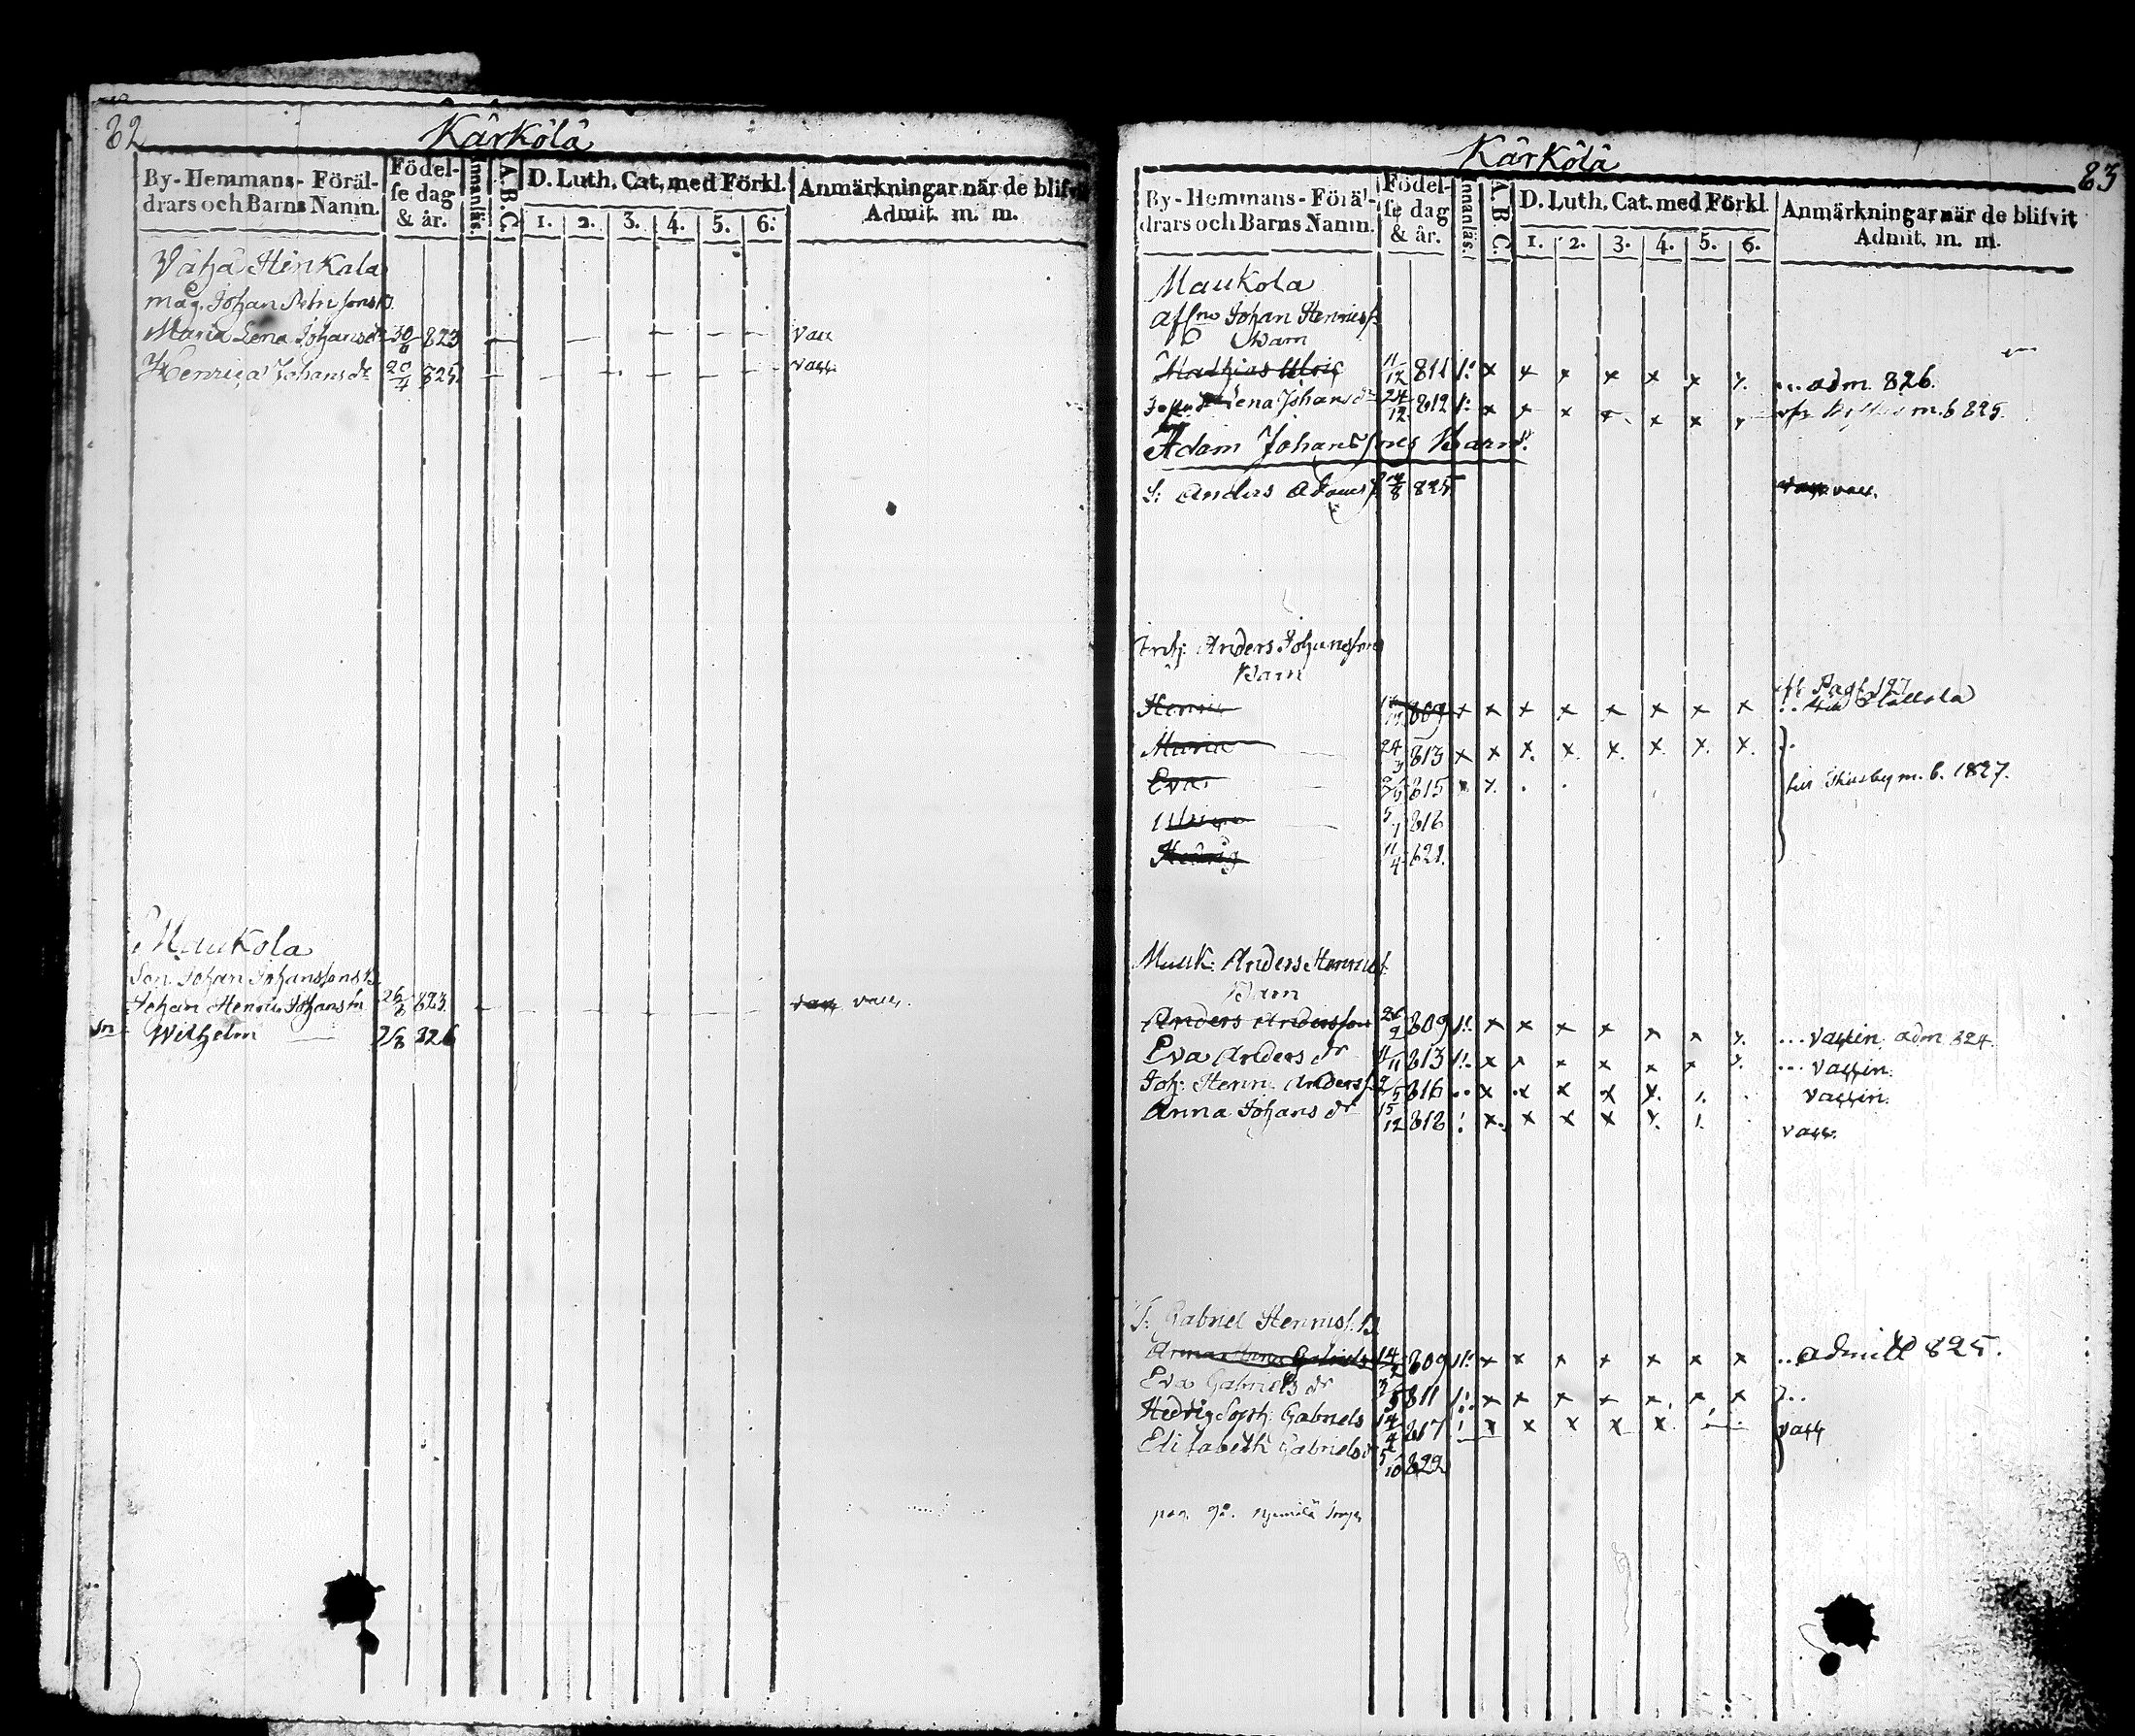 82
Kärkölä
By-Hemmans-Föräl-
drars och Barns Namn.
Födel-
se dag
& år.
Innanläs.
A.B.C.
D. Luth. Cat. med Förkl.
1. 2. 3. 4. 5. 6.
Anmärkningar när de blifvit
Admit. m. m.
Vähä Hinkala
måg. Johan
Maria Lena Johansdr 30/8 823 — — — — — — vacc
Henrica Johansdr 20/4 825 — — — — — — vacc.
Maukola
Son. Johan Johanssons B.
Johan Henric Johanssn 26/8 823 — — — — — — vacc.
sn Wilhelm — 7/8 826
Kärkölä
83
By-Hemmans-Föräl-
drars och Barns Namn.
Födel-
se dag
& år.
Innanläs.
A.B.C.
D. Luth. Cat. med Förkl.
1. 2. 3. 4. 5. 6.
Anmärkningar när de blifvit
Admit. m. m.
Maukola
Johan Henricss.
Barn
Mathias Ulric 11/12 811 x x x x x x x. ... adm. 826.
Lena Johansdr 24/12 812 x x x x x x m.b 825.
Adam Johanssons Barn.
S: Anders Adamss 825 vacc.
Anders Johansson
Barn
Henric 809 x x x x x x x x Pag. 127
Maria — 24/3 813 x x x. x. x. x. x. x.
Eva 815 x. . . m.b. 1827.
5/1 818
Hedvig 11/4 821.
Mauk: Anders Henricss.
Barn
Anders Andersson 809 x x x x x x x. ... vaccin. adm 824.
Eva Andersdr 11/11 813 x x x x x x x. ... vaccin.
Joh: Henric Anderss. 2/5 816 .. x x x x x. vaccin.
Anna Johansdr 15/12 818 ! x. x x x x. vacc.
T. Gabriel Henricss. B
Anna Gabriels 14/2 809 x x x x x x x ... admitt 825.
Eva Gabrielsdr 3/5 811 x x x x x. x x ...
Hedvig Soph: Gabriels 14/4 817 ! x x x x x vacc
Elisabeth Gabrielsdr 5/10 822
pag.